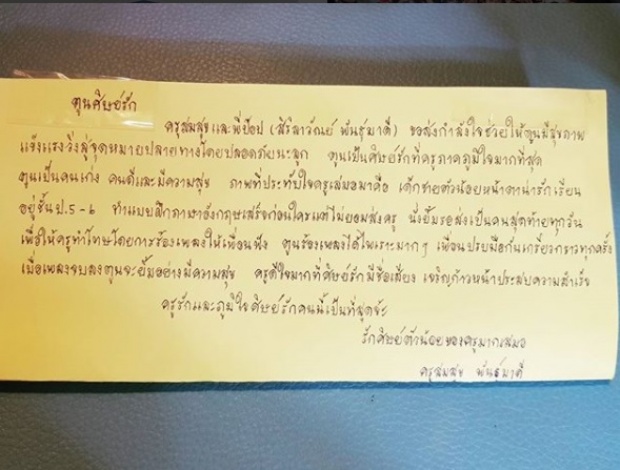 ตูนศิษย์รัก
ครูสมสุข และพี่ป๊อป (สิริลาวัณย์ พันธุ์มาดี) ขอส่งกำลังใจช่วยให้ตูนมีสุขภาพ
แข็งแรงวิ่งสู่จุดหมายปลายทางโดยปลอดภัยนะลูก ตูนเป็นศิษย์รักที่ครูภาคภูมิใจมากที่สุด
ตูนเป็นคนเก่ง คนดีและมีความสุข ภาพที่ประทับใจครูเสมอมาคือ เด็กชายตัวน้อยหน้าตาน่ารักเรียน
อยู่ชั้น ป.5-6 ทำแบบฝึกภาษาอังกฤษเสร็จก่อนใครแต่ไม่ยอมส่งครู นั่งยิ้มรอส่งเป็นคนสุดท้ายทุกวัน
เพื่อให้ครูทำโทษโดยการร้องเพลงให้เพื่อนฟัง ตูนร้องเพลงได้ไพเราะมากๆ เพื่อนปรบมือกันเกรียวกราวทุกครั้ง
เมื่อเพลงจบลงตูนจะยิ้มอย่างมีความสุข ครูดีใจมากที่ศิษย์รักมีชื่อเสียง เจริญก้าวหน้าประสบความสำเร็จ
ครูรักและภูมิใจศิษย์รักคนนี้เป็นที่สุดจ้ะ
รักศิษย์ตัวน้อยของครูมากเสมอ
ครูสมสุข พันธุ์มาดี